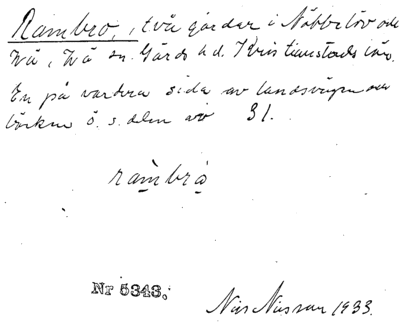 Rambro, två gårdar i Nöbbelöv och
Vä, Vä sn. Gärds hd. Kristianstads län.
En på vardera sida av landsvägen och
ö. s. den 31.
rambro
Nr 5343.
Nils Nilsson 1933.